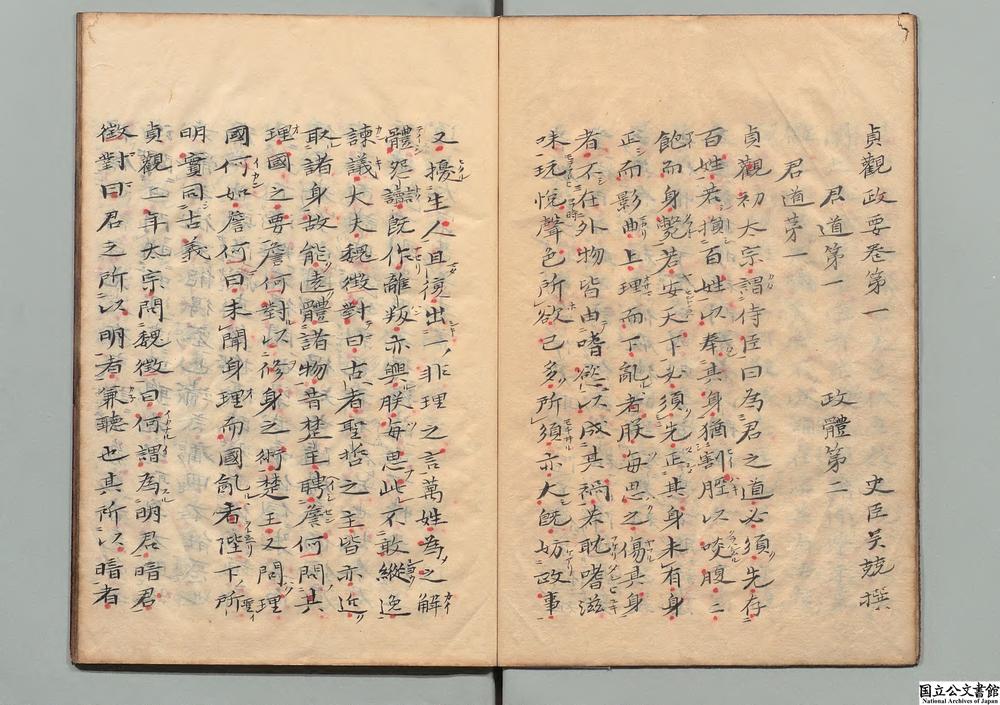 貞觀政要卷第一
史臣吴兢撰
君道第一　政體第二
君道第一
貞觀初太宗謂侍臣曰為君之道必須先存
百姓若損百姓以奉其身猶割脛以啖腹
飽而身斃若安天下必須先正其身未有身
正而影曲上理而下亂者朕每思之傷其身
者不在外物皆由嗜慾以成其禍若耽嗜滋
味玩悅聲色所欲已多所須亦大既妨政事
又擾生人且復出一非理之言萬姓為之解
體怨讟既作離叛亦興朕每思此不敢縱逸
諫議大夫魏徵對曰古者聖哲之主皆亦近
取諸身故能遠體諸物昔楚王聘詹何問其
理國之要詹何對以修身之術楚王又問理
國何如詹何曰未聞身理而國亂者陛下所
明實同古義
貞觀二年太宗問魏徵曰何謂為明君暗君
徵對曰君之所以明者兼聽也其所以暗者
国立公文書館
National Archives of Japan